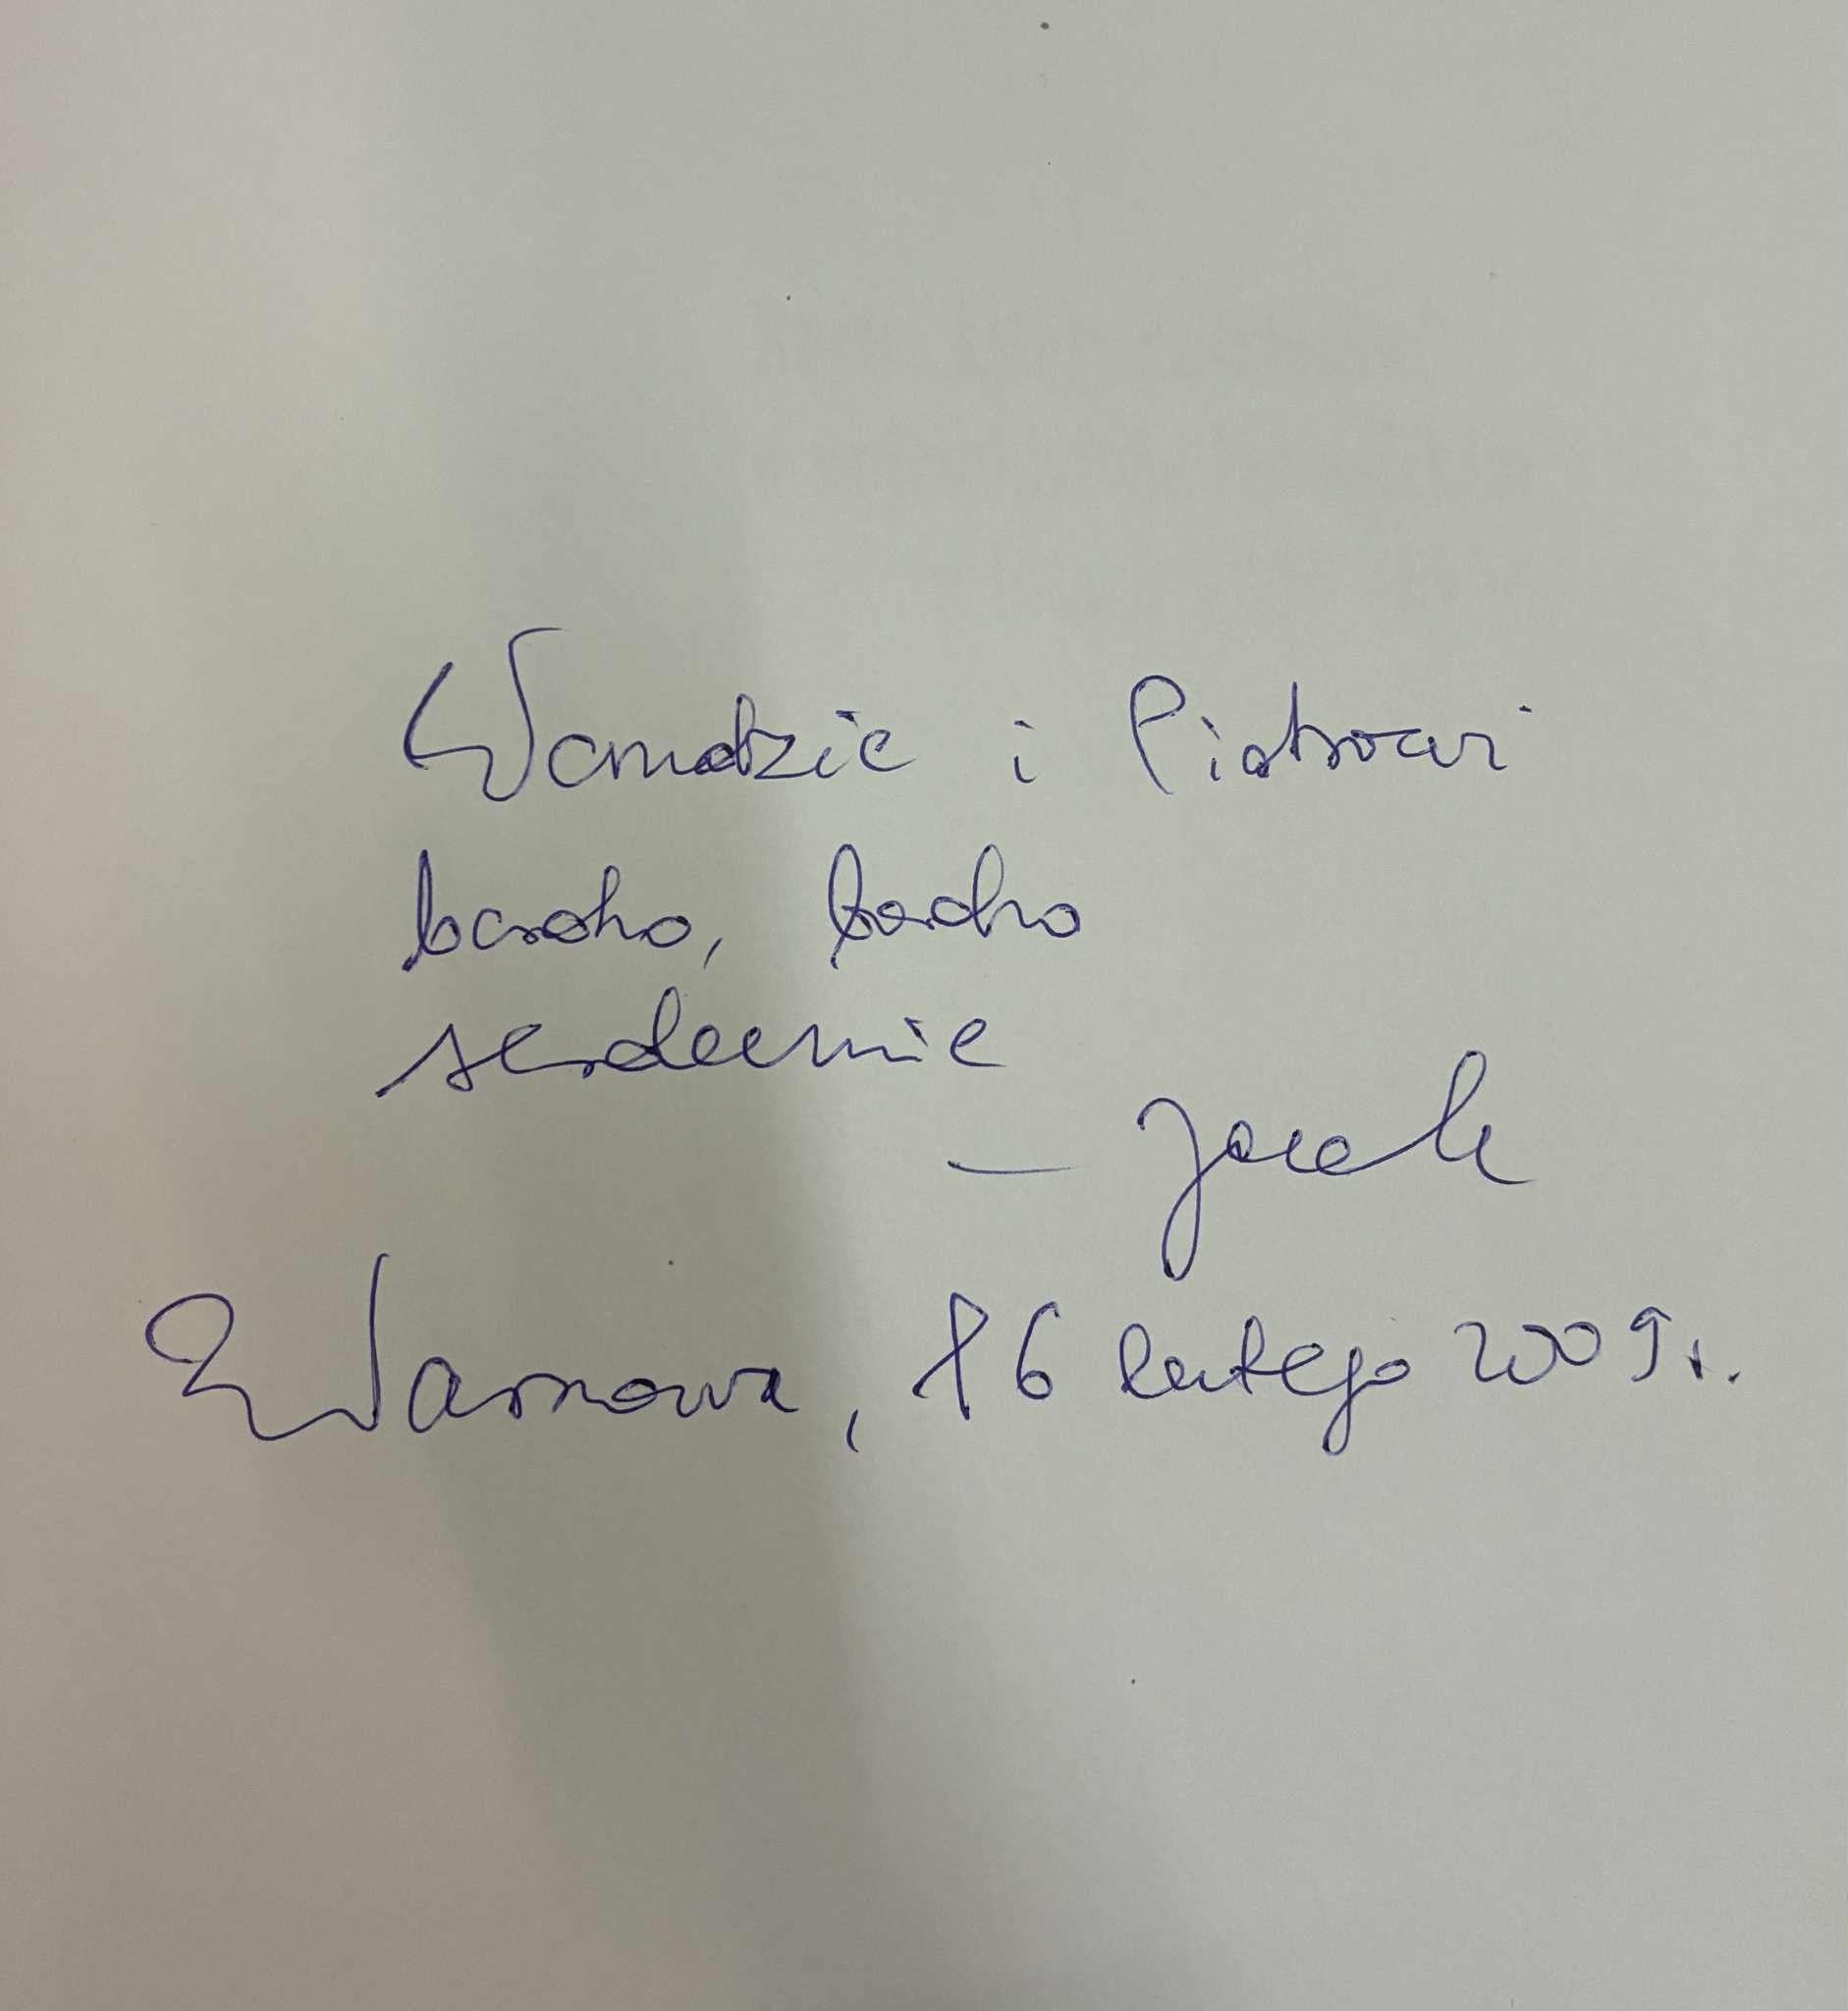 Wandzie i Piotrowi
bardzo, bardzo
serdecznie
– Jacek
Warszawa, 16 lutego 2009 r.